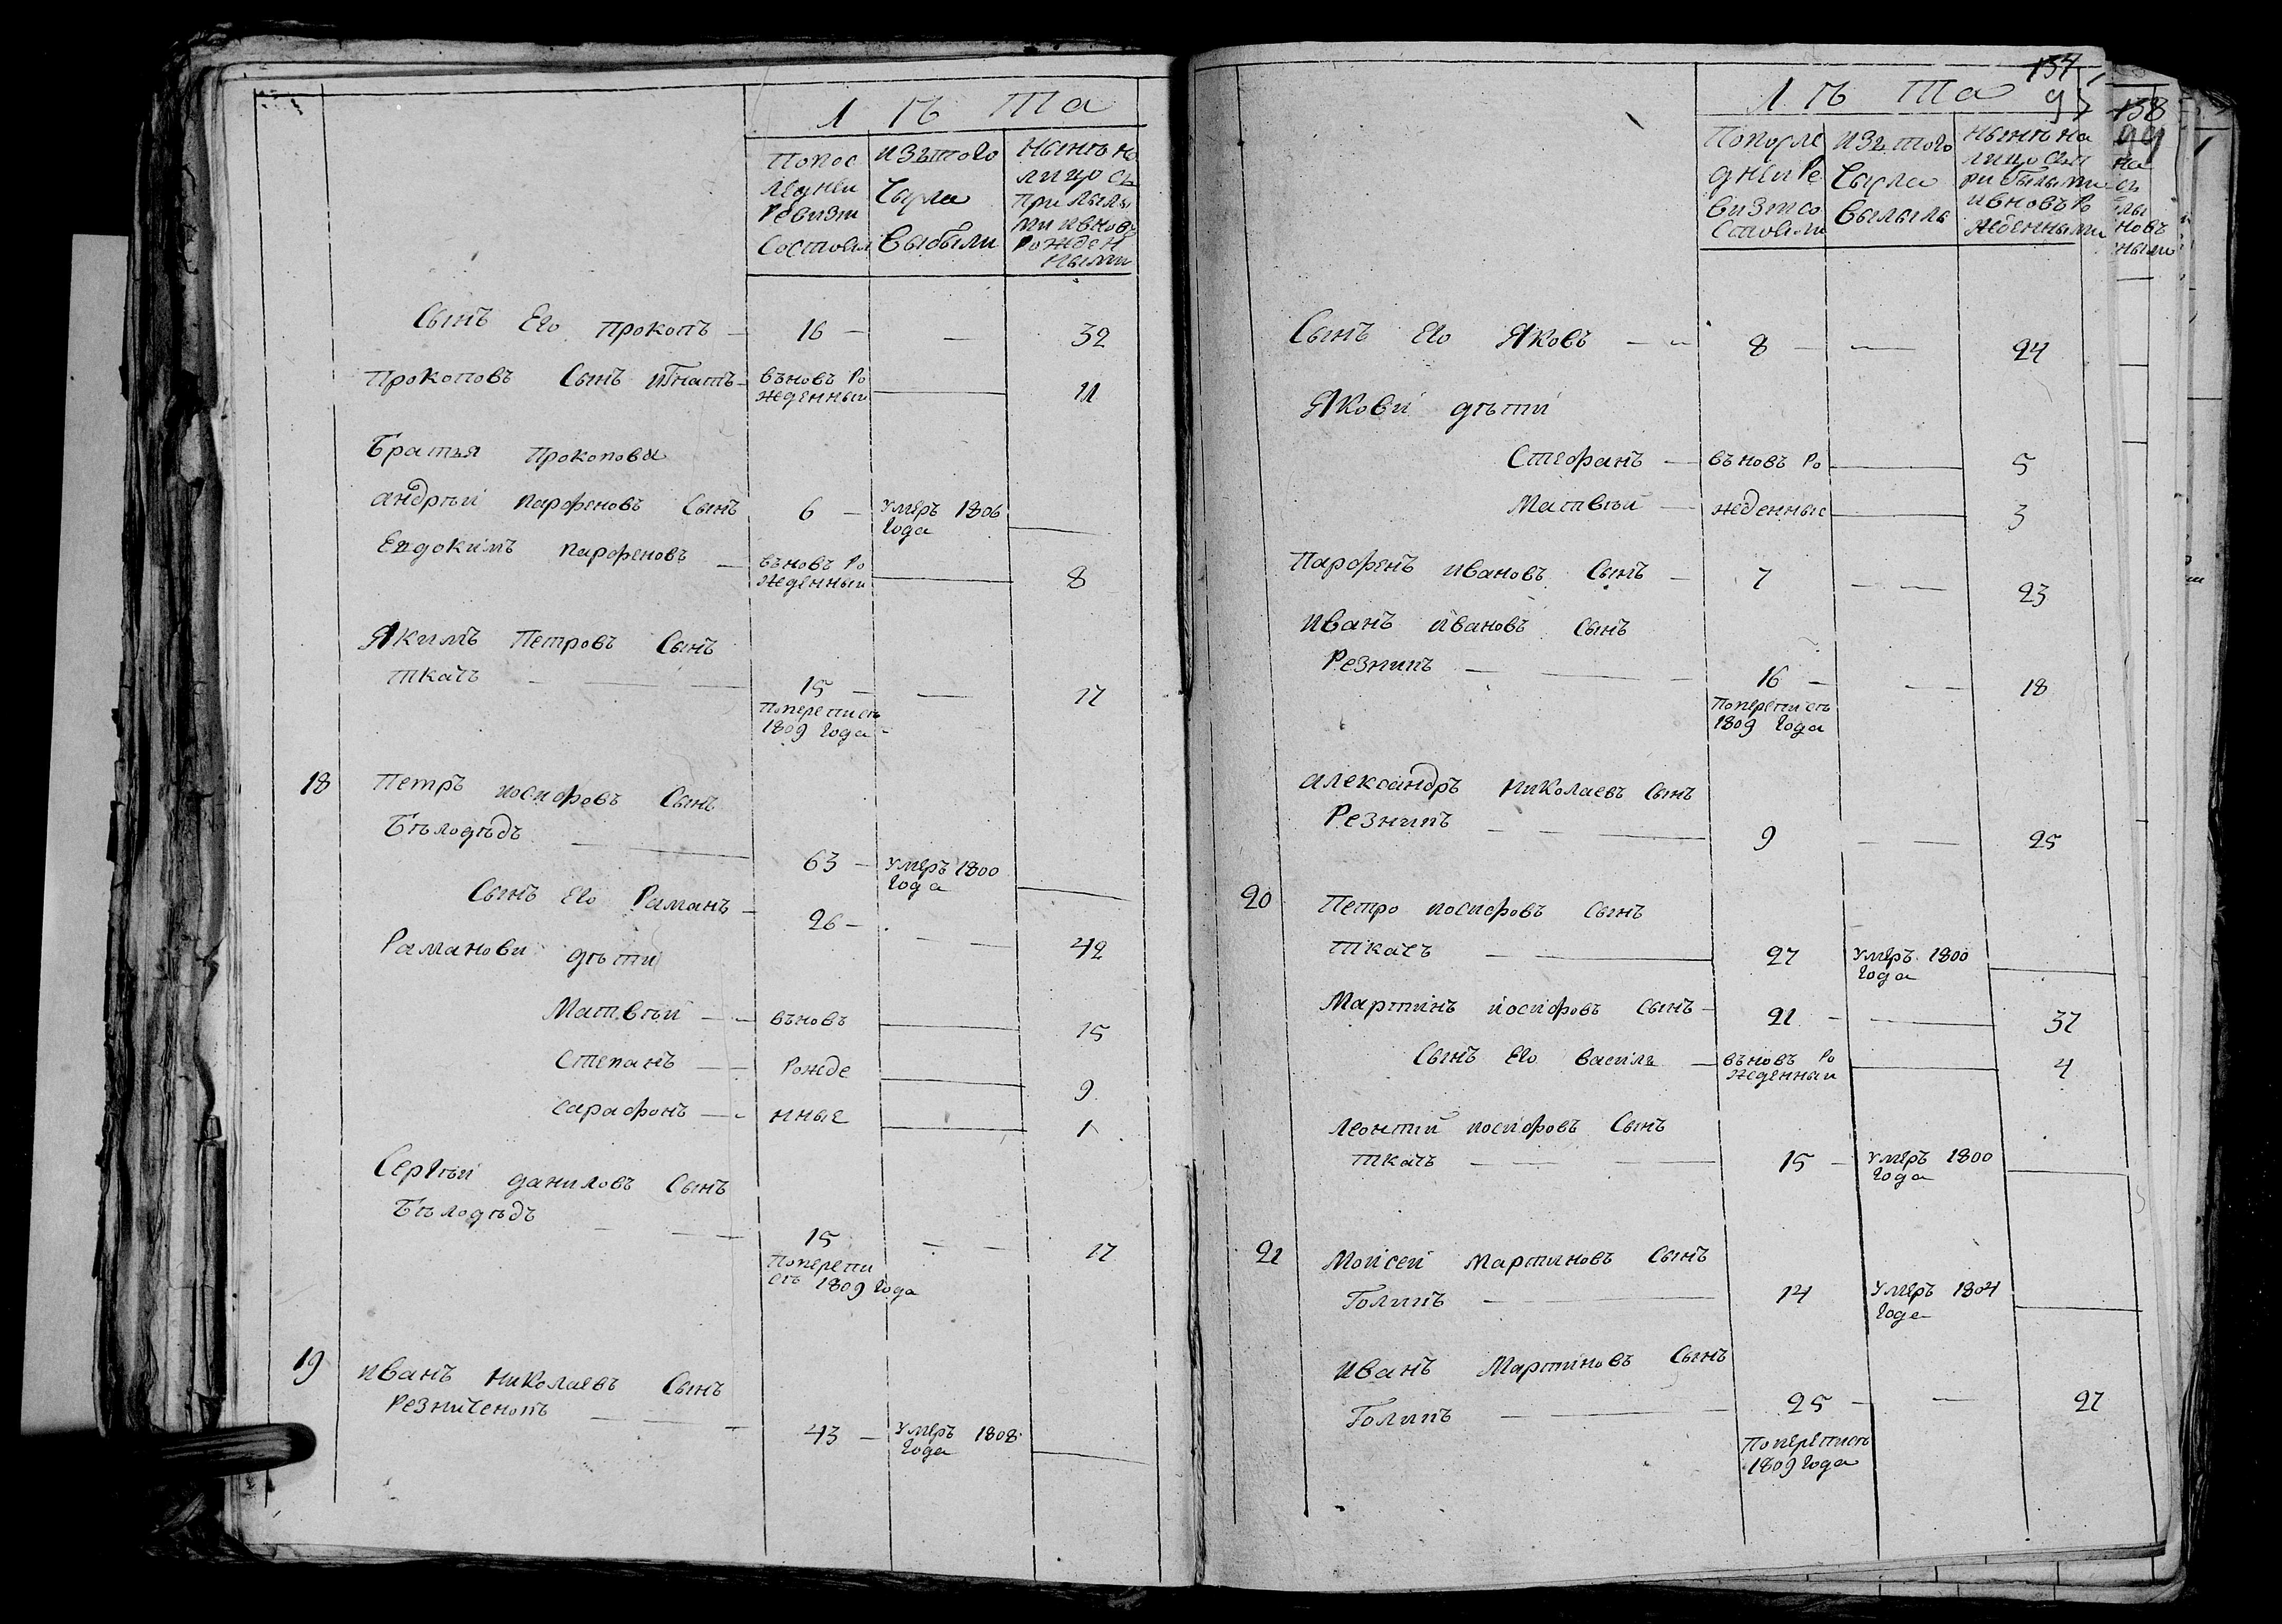 Лѣта
Попос изътого Нынѣ на
ледней числа лицо съ
Ревизи выбыли прибылы
состоял ми ивновь
рожден
ными
Сынъ Его прокопъ — 16 — — 32
прокоповъ Сынъ игнатъ — въновъ Ро — 11
жденный
братья прокоповы
андрѣй парфеновъ Сынъ 6 — умеръ 1806 —
года
Евдокимъ парфеновъ — въновъ Ро — 8
жденный
Якимъ Петровъ Сынъ
ткачъ — 15 — — 17
Попереписѣ
1809 года
18 Петръ иосифовъ Сынъ
бѣлодѣдъ — 63 — умеръ 1800 —
года
Сынъ Его Раманъ — 26 — — 42
Раманови дѣти
Матвѣй — въновъ — 15
Степанъ — Рожде — 9
сарафонъ — нные — 1
Сергѣй даниловъ Сынъ
бѣлодѣдъ — 15 — — 17
Поперепи
сѣ 1809 года
19 иванъ николаевъ Сынъ
Резниченокъ — 43 — умеръ 1808 —
года
137
97
Лѣта
Попосле изътого Нынѣ на
дней Ре числа лицо съп
визи со выбыль рибылыми
стояли ивновъ Ро
жденными
138
99
на
съ
лы
новъ
ными
Сынъ Его Яковъ — 8 — — 24
Якови дѣти
Стефанъ — въновъ Ро — 5
Матвѣй — жденные — 3
Парфенъ ивановъ Сынъ — 7 — — 23
иванъ ивановъ Сынъ
Резникъ — 16 — — 18
Попереписѣ
1809 года
александръ николаевъ Сынъ
Резникъ — 9 — — 25
20 Петро иосифовъ Сынъ
ткачъ — 27 умеръ 1800 —
года
Мартинъ иосифовъ Сынъ — 21 — — 37
Сынъ Его василь — въновъ Ро — 4
жденный
леонтий иосифовъ Сынъ
ткачъ — 15 — умеръ 1800 —
года
21 Моисей мартиновъ Сынъ
Голикъ — 14 умеръ 1804 —
года
иванъ Мартиновъ Сынъ
Голикъ — 25 — — 27
Попереписѣ
1809 года